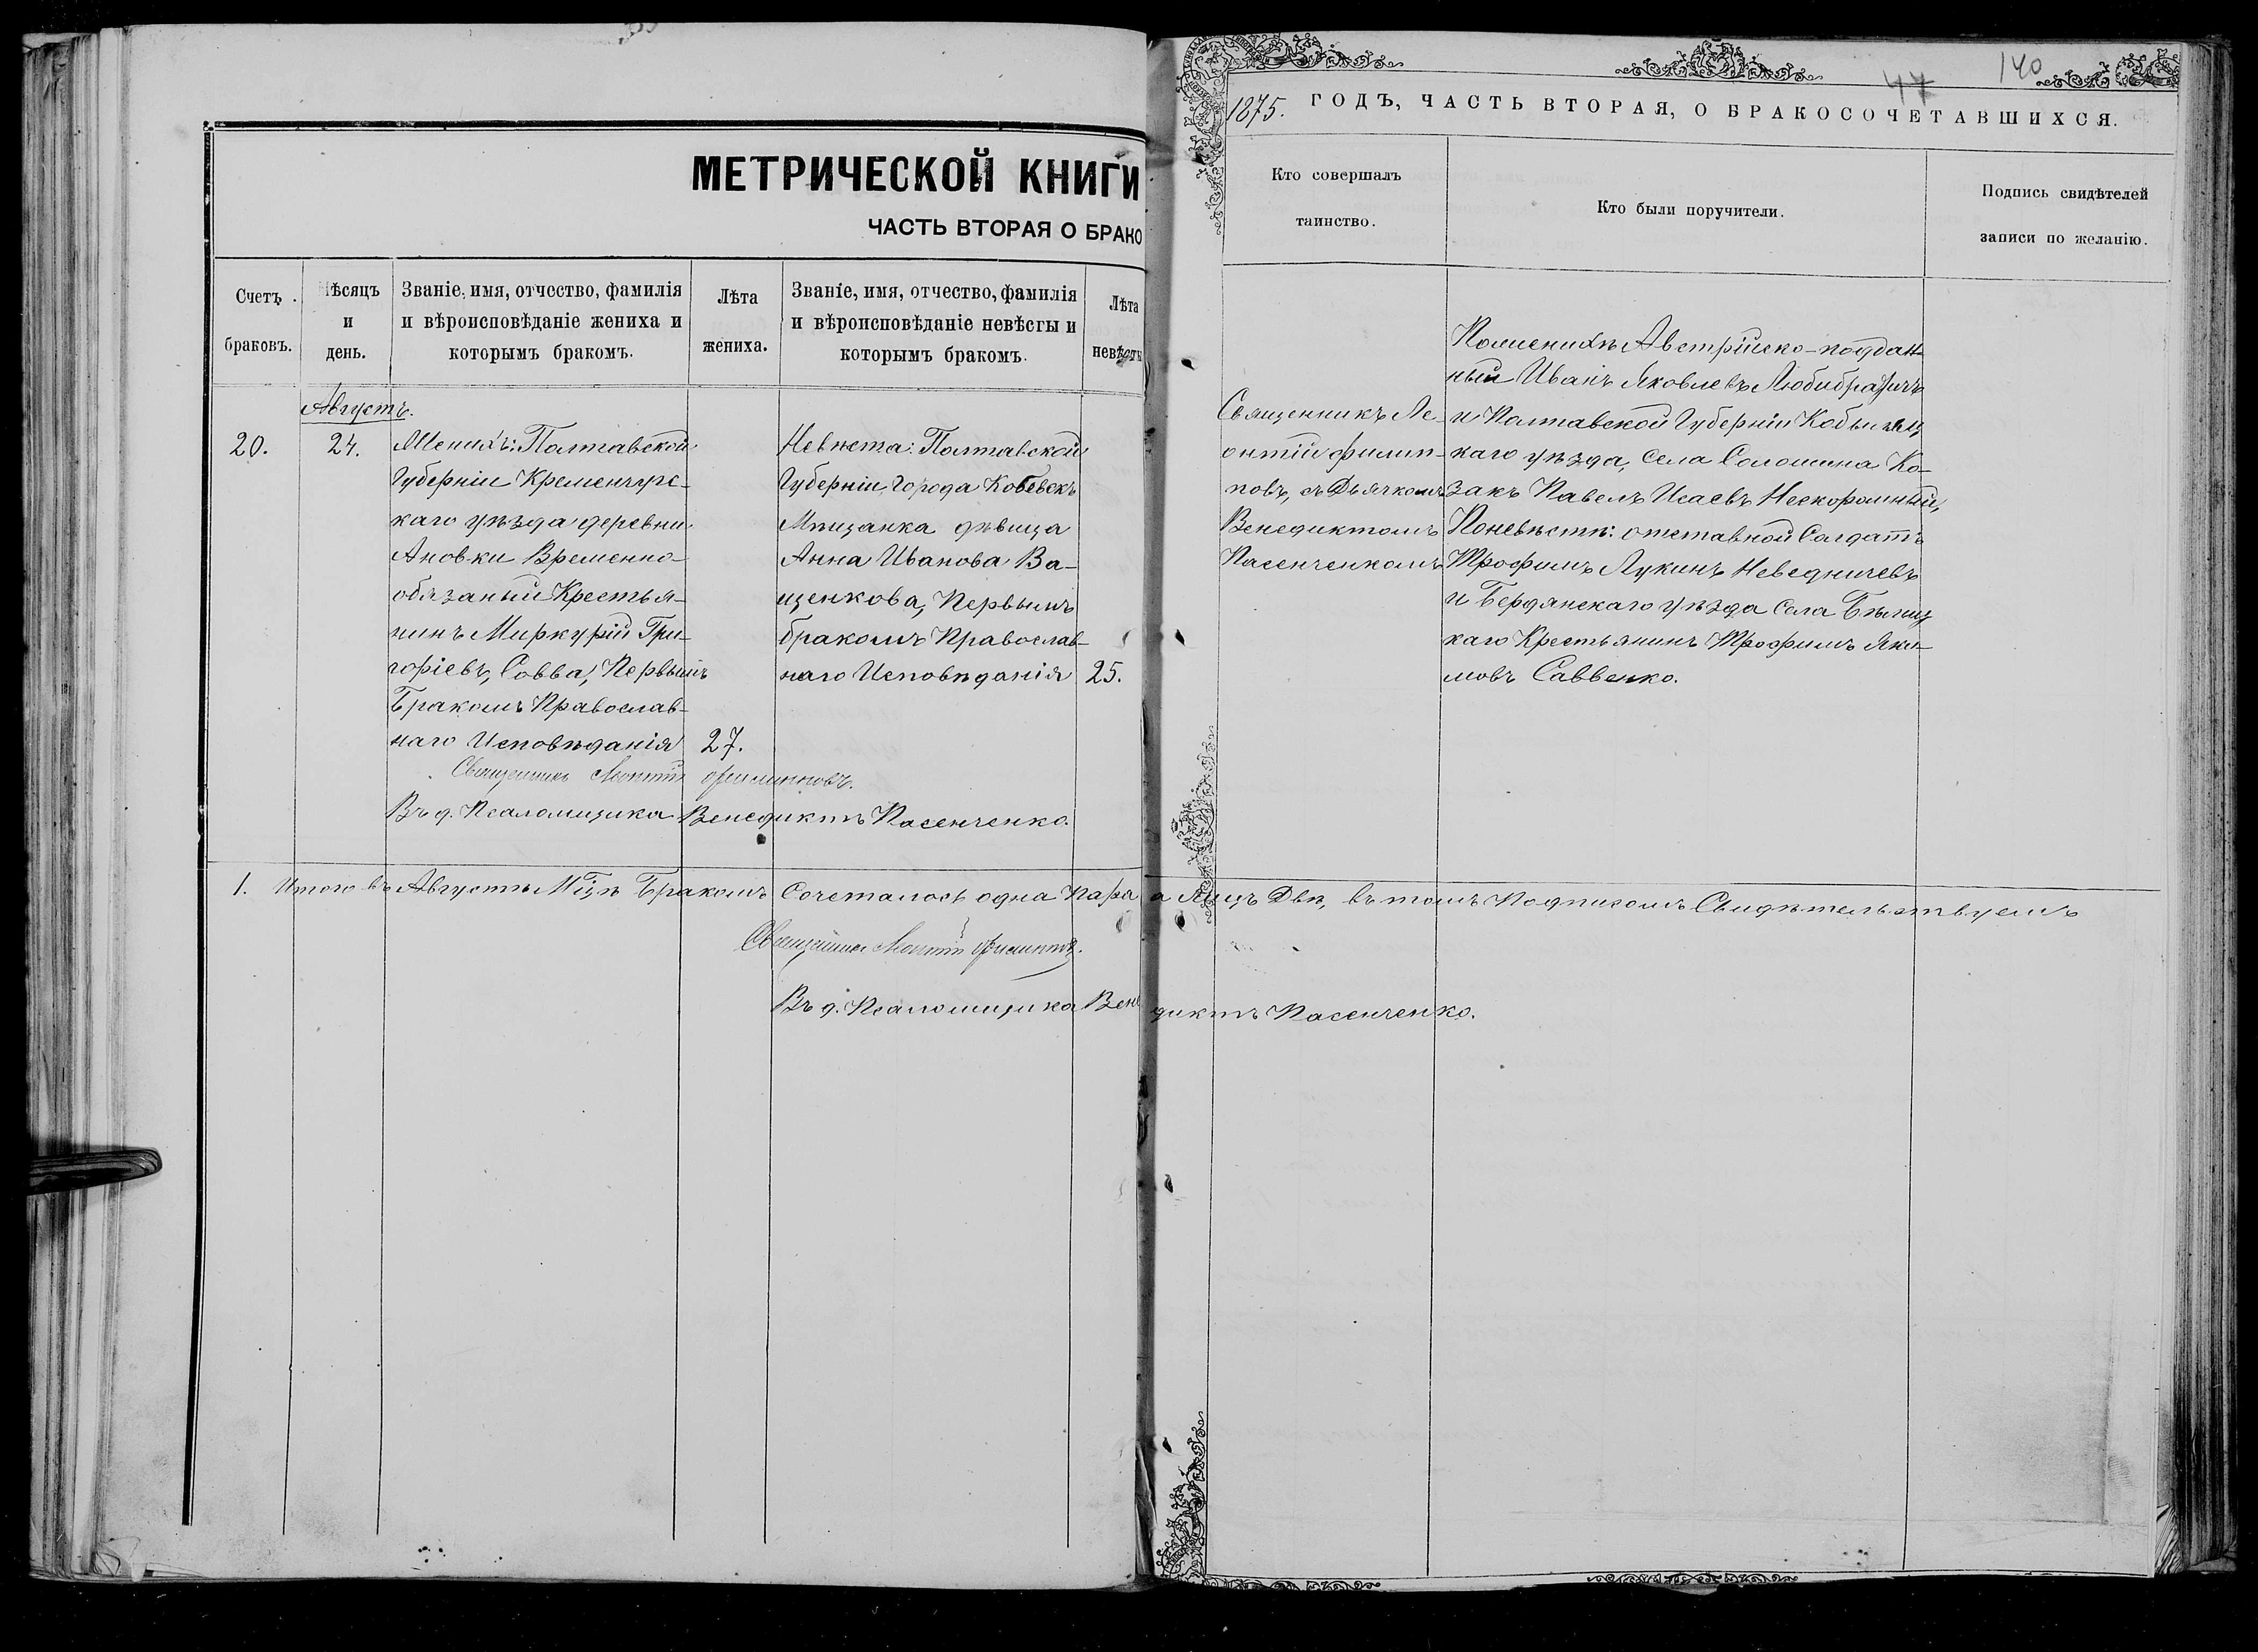 МЕТРИЧЕСКОЙ КНИГИ
ЧАСТЬ ВТОРАЯ О БРАКО
Счетъ
браковъ.
ѣсяцъ
и
день.
Званіе, имя, отчество, фамилія
и вѣроисповѣданіе жениха и
которымъ бракомъ.
Лѣта
жениха.
Званіе, имя, отчество, фамилія
и вѣроисповѣданіе невѣсты и
которымъ бракомъ.
Лѣта
невѣсты
Августъ.
20.
24.
Женихъ: Полтавской
Губерніи Кременчугс-
каго уѣзда деревни
Ановки Временно-
обязаный Крестья-
нинъ Миркурій Гри-
горіевъ, Совва, Первымъ
Бракомъ Православ-
наго Исповѣданія
27.
Невѣста: Полтавской
Губерніи, Города Кобевекъ
Мѣщанка дѣвица
Анна Иванова Ва-
щенкова, Первымъ
бракомъ Православ-
наго Исповѣданія
25.
Священникъ Леонтій Филипповъ.
Въ д. Псаломщика Венедиктъ Пасенченко.
1. Итого въ Августѣ Мцѣ Бракомъ Сочеталось одна Пара
Священникъ Леонтій Филипповъ.
Въ д. Псаломщика Вене
47
140
1875. ГОДЪ, ЧАСТЬ ВТОРАЯ, О БРАКОСОЧЕТАВШИХСЯ.
Кто совершалъ
таинство.
Кто были поручители.
Подпись свидѣтелей
записи по желанію.
Священникъ Ле-
онтій Филип-
повъ, съ Дьячкомъ
Венедиктомъ
Пасенченкомъ
Поженихѣ Австрійско-поддан-
ный Иванъ Яковлевъ Любибратичъ
и Полтавской Губерніи Кобыляц
каго уѣзда, Села Солошина Ко-
закъ Павелъ Исаевъ Нескоромный,
Поневѣстѣ: отставной Солдатъ
Трофимъ Лукинъ Неведничевъ
и Бердянскаго уѣзда Села Бѣлиц
каго Крестьянинъ Трофимъ Яки-
мовъ Саввенко.
а Лицъ Двѣ, въ томъ Подписомъ Свидѣтельствуемъ
диктъ Пасенченко.